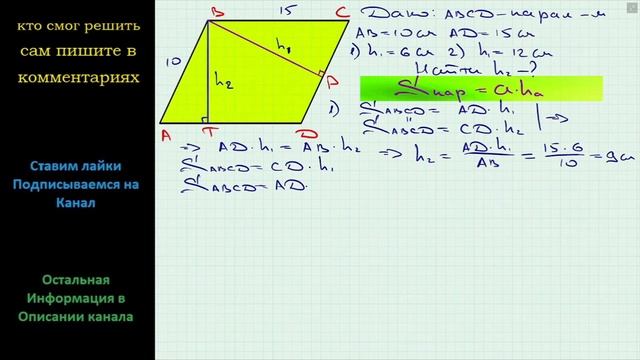 кто смог решить
сам пишите в
комментариях
Ставим лайки
Подписываемся на
Канал
Остальная
Информация в
Описании канала
B 15 C
10
h₁
h₂
P
A T D
Дано: ABCD-парал-м
AB=10см AD=15см
1) h₁=6см 2) h₁=12см
Найти h₂-?
Sпар = a·hₐ
1) SABCD = AD·h₁
SABCD = CD·h₂ | =>
=> AD·h₁ = AB·h₂ => h₂ = AD·h₁/AB = 15·6/10 = 9см
SABCD = CD·h₁
SABCD = AD·